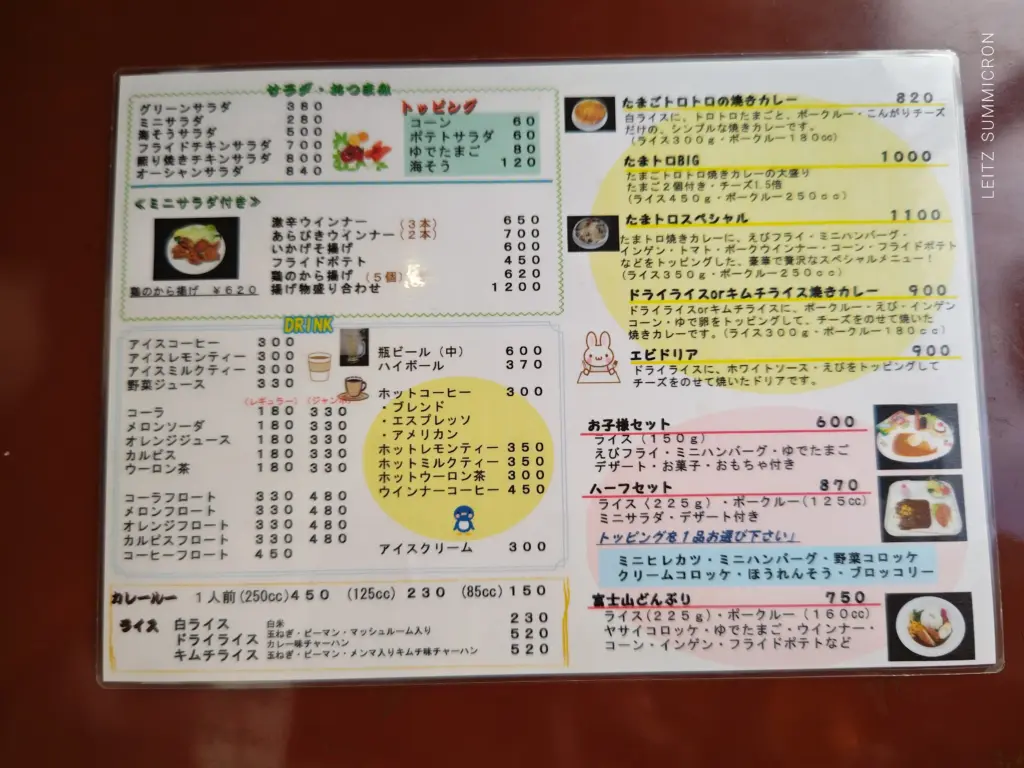 サラダ・おつまみ
グリーンサラダ 380
ミニサラダ 280
海そうサラダ 500
フライドチキンサラダ 700
照り焼きチキンサラダ 800
オーシャンサラダ 840
トッピング
コーン 60
ポテトサラダ 60
ゆでたまご 80
海そう 120
≪ミニサラダ付き≫
激辛ウインナー (3本) 650
あらびきウインナー (2本) 700
いかげそ揚げ 600
フライドポテト 450
鶏のから揚げ (5個) 620
揚げ物盛り合わせ 1200
鶏のから揚げ ¥620
DRINK
アイスコーヒー 300
アイスレモンティー 300
アイスミルクティー 300
野菜ジュース 330
(レギュラー) (ジャンボ)
コーラ 180 330
メロンソーダ 180 330
オレンジジュース 180 330
カルピス 180 330
ウーロン茶 180 330
コーラフロート 330 480
メロンフロート 330 480
オレンジフロート 330 480
カルピスフロート 330 480
コーヒーフロート 450
瓶ビール(中) 600
ハイボール 370
ホットコーヒー 300
・ブレンド
・エスプレッソ
・アメリカン
ホットレモンティー 350
ホットミルクティー 350
ホットウーロン茶 300
ウインナーコーヒー 450
アイスクリーム 300
カレールー 1人前(250cc)450 (125cc) 230 (85cc) 150
ライス 白ライス 白米 230
ドライライス 玉ねぎ・ピーマン・マッシュルーム入り カレー味チャーハン 520
キムチライス 玉ねぎ・ピーマン・メンマ入りキムチ味チャーハン 520
たまごトロトロの焼きカレー 820
白ライスに、トロトロたまごと、ポークルー・こんがりチーズ
だけの、シンプルな焼きカレーです。
(ライス300g・ポークルー180cc)
たまトロBIG 1000
たまごトロトロ焼きカレーの大盛り
たまご2個付き・チーズ1.5倍
(ライス450g・ポークルー250cc)
たまトロスペシャル 1100
たまトロ焼きカレーに、えびフライ・ミニハンバーグ・
インゲン・トマト・ポークウインナー・コーン・フライドポテト
などをトッピングした、豪華で贅沢なスペシャルメニュー!
(ライス350g・ポークルー250cc)
ドライライスorキムチライス焼きカレー 900
ドライライスorキムチライスに、ポークルー・えび・インゲン
コーン・ゆで卵をトッピングして、チーズをのせて焼いた
焼きカレーです。(ライス300g・ポークルー180cc)
エビドリア 900
ドライライスに、ホワイトソース・えびをトッピングして
チーズをのせて焼いたドリアです。
お子様セット 600
ライス(150g)
えびフライ・ミニハンバーグ・ゆでたまご
デザート・お菓子・おもちゃ付き
ハーフセット 870
ライス(225g)・ポークルー(125cc)
ミニサラダ・デザート付き
トッピングを1品お選び下さい」
ミニヒレカツ・ミニハンバーグ・野菜コロッケ
クリームコロッケ・ほうれんそう・ブロッコリー
富士山どんぶり 750
ライス(225g)・ポークルー(160cc)
ヤサイコロッケ・ゆでたまご・ウインナー・
コーン・インゲン・フライドポテトなど
LEITZ SUMMICRON